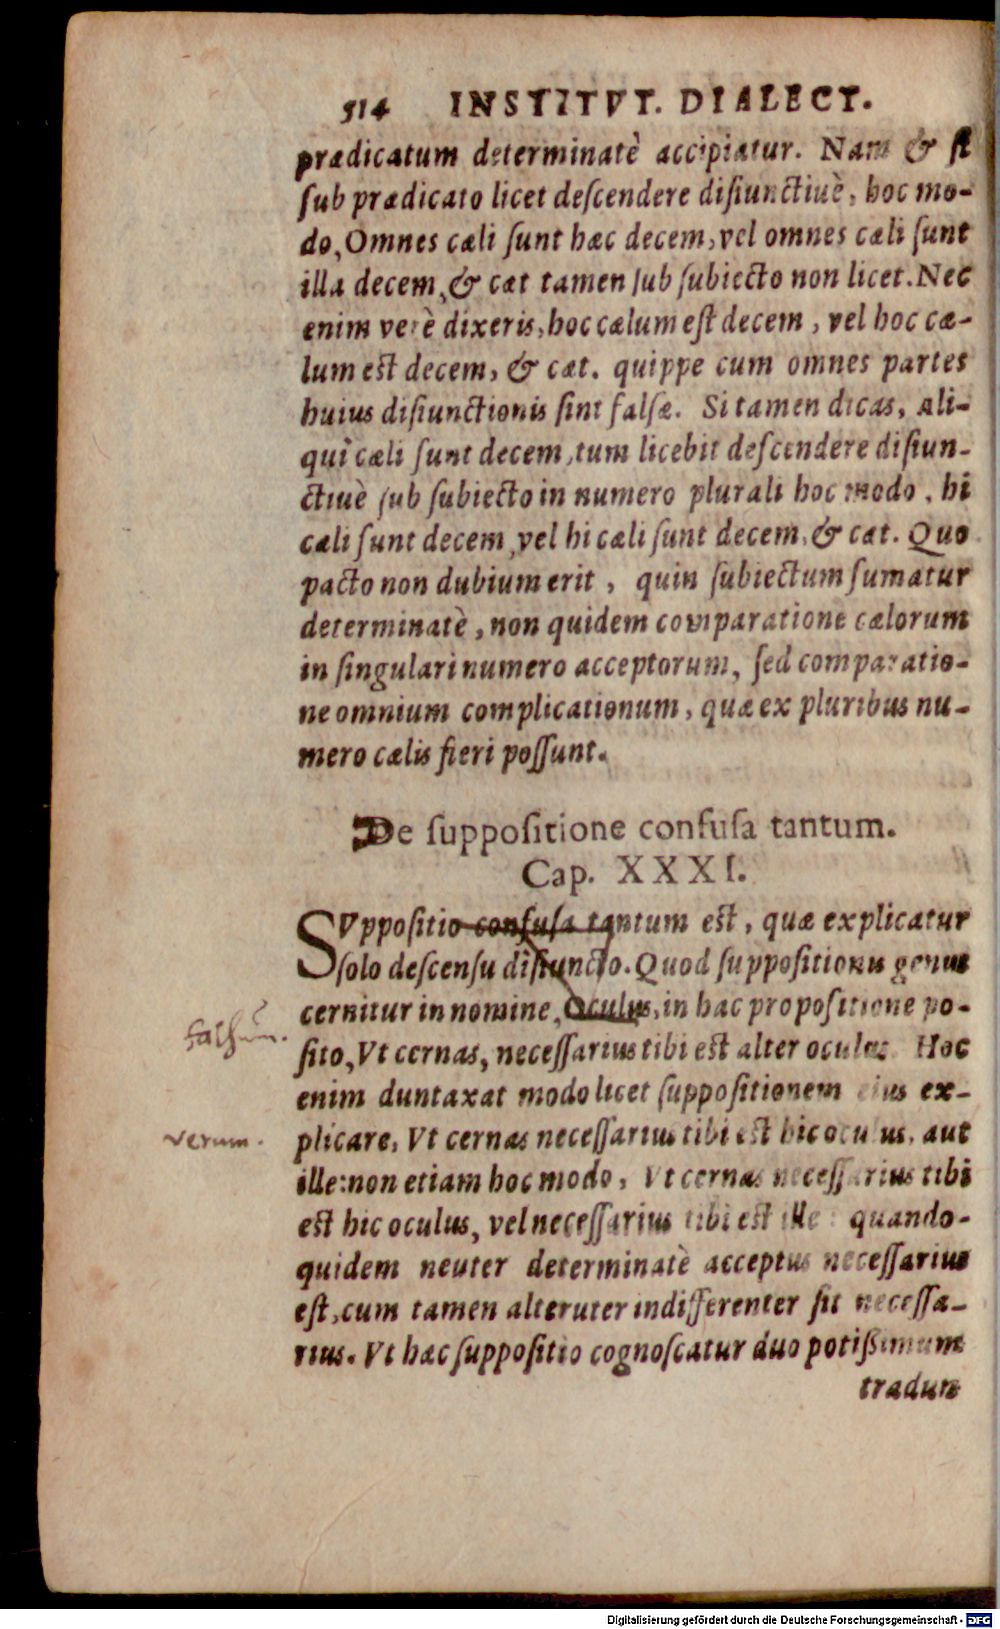 514 INSTITVT. DIALECT.
prædicatum determinatè accipiatur. Nam & si
sub prædicato licet descendere disiunctiuè, hoc mo-
do, Omnes cæli sunt hæc decem, vel omnes cæli sunt
illa decem, & cæt tamen sub subiecto non licet. Nec
enim verè dixeris, hoc cælum est decem, vel hoc cæ-
lum est decem, & cæt. quippe cum omnes partes
huius disiunctionis sint falsæ. Si tamen dicas, Ali-
qui cæli sunt decem, tum licebit descendere disiun-
ctiuè sub subiecto in numero plurali hoc modo, hi
cæli sunt decem, vel hi cæli sunt decem, & cæt. Quo
pacto non dubium erit, quin subiectum sumatur
determinatè, non quidem comparatione cælorum
in singulari numero acceptorum, sed comparatio-
ne omnium complicationum, quæ ex pluribus nu-
mero cælis fieri possunt.
De suppositione confusa tantum.
Cap. XXXI.
SVppositio confusa tantum est, quæ explicatur
solo descensu disiuncto. Quod suppositionis genus
cernitur in nomine, Oculus, in hac propositione po-
sito, Vt cernas, necessarius tibi est alter oculus. Hoc
enim duntaxat modo licet suppositionem eius ex-
plicare, Vt cernas necessarius tibi est hic oculus, aut
ille: non etiam hoc modo, Vt cernas necessarius tibi
est hic oculus, vel necessarius tibi est ille: quando-
quidem neuter determinatè acceptus necessarius
est, cum tamen alteruter indifferenter sit necessa-
rius. Vt hæc suppositio cognoscatur duo potißimum
tradun
falsum.
verum.
Digitalisierung gefördert durch die Deutsche Forschungsgemeinschaft - DFG